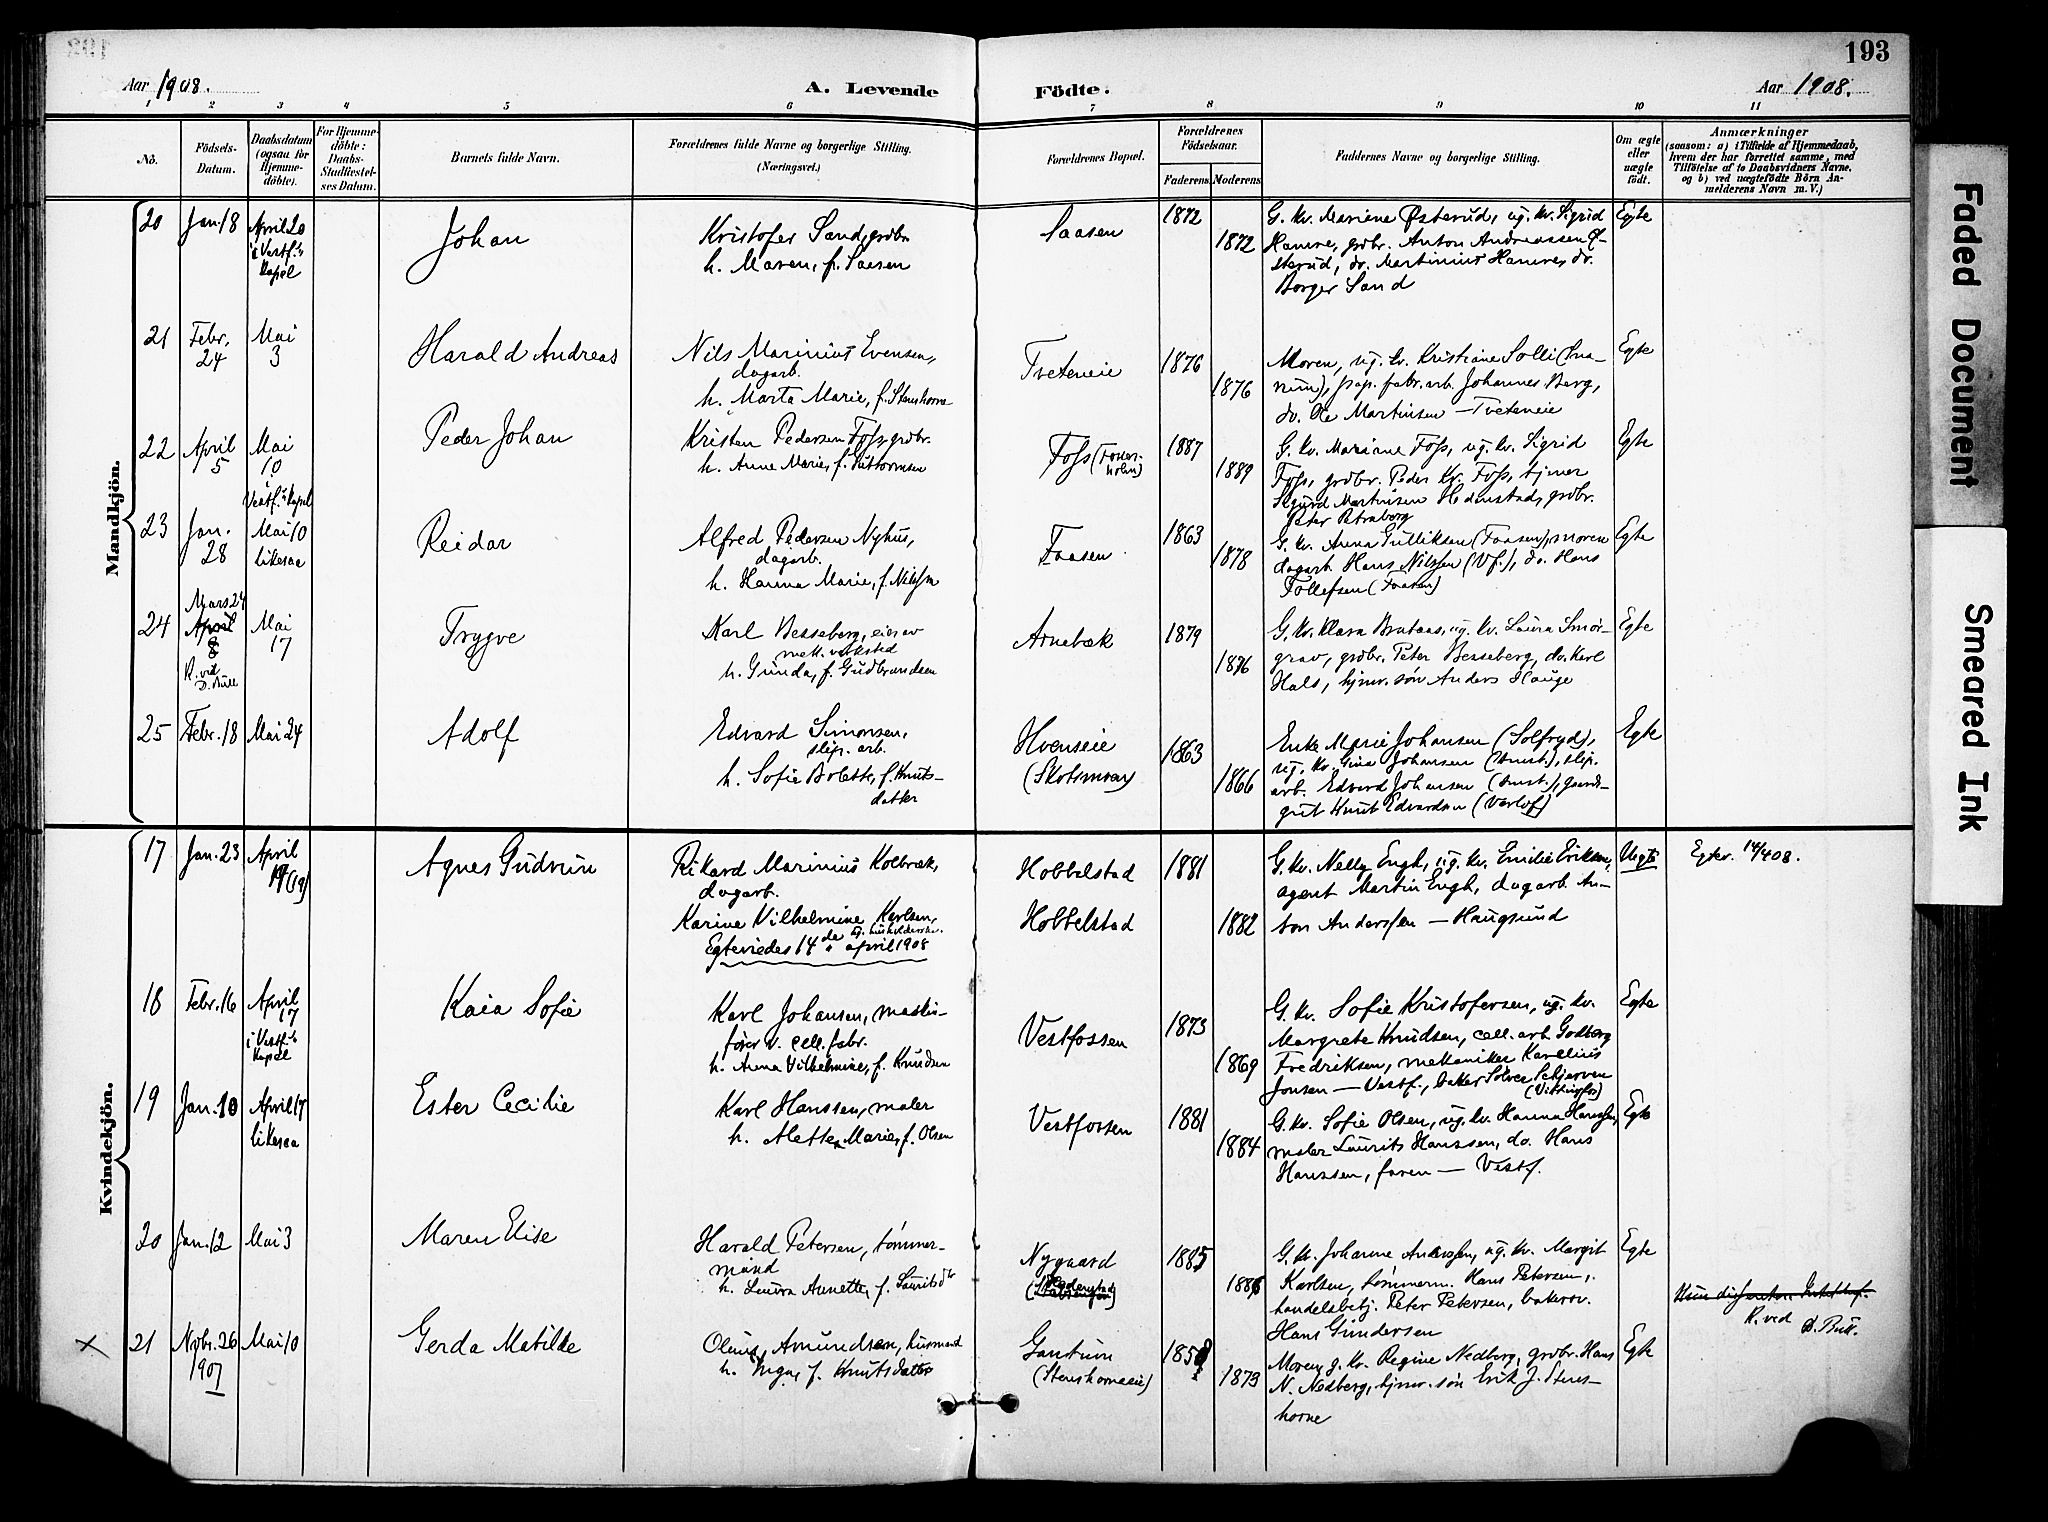 193
Aar 1908.
A. Levende Födte.
Aar 1908.
1 2 3 4 5 6 7 8 9 10 11
No.
Födsels-Datum.
Daabsdatum (ogsaa for Hjemme-döbte).
For Hjemme-döbte: Daabs-Stadfæstel-ses Datum.
Barnets fulde Navn.
Forældrenes fulde Navne og borgerlige Stilling. (Næringsvei.)
Forældrenes Bopæl.
Forældrenes Födselsaar.
Faderens. Moderens.
Faddernes Navne og borgerlige Stilling.
Om ægte eller uægte födt.
Anmærkninger
(saasom: a) i Tilfælde af Hjemmedaab,
hvem der har forrettet samme, med
Tilföielse af to Daabsvidners Navne,
og b) ved uægtefödte Börn An-
melderens Navn m. V.)
Mandkjön.
20 Jan. 18 April 20 i Vestf.'s Kapel
Johan
Kristofer Sand, grdbr.
h. Maren, f. Saasen
Saasen
1872
1872
G. kv. Mariene Østerud, ug. kv. Sigrid
Hamre, grdbr. Anton Andreassen Ø-
sterud, do. Martinius Hamre, do.
Borger Sand
Egte
21 Febr. 24 Mai 3
Harald Andreas
Nils Marinius Evensen,
dagarb.
h. Marta Marie, f. Stenshorne
Tveteneie
1876
1876
Moren, ug. kv. Kristiane Solli (Sna-
rum), pap. fabr. arb. Johannes Berg,
do. Ole Martinsen — Tveteneie
Egte
22 April 5 Mai 10 i Vestf.'s Kapel
Peder Johan
Kristen Pedersen Foss, grdbr.
h. Anne Marie, f.
Foss
1887
1889
G. kv. Mariane Foss, ug. kv. Sigrid
Foss, grdbr. Peder Kr. Foss, tjener
Sigurd Martinsen Hedenstad, grdbr.
Peter
Egte
23 Jan. 28 Mai 10 likesaa
Reidar
Alfred Pedersen Nyhus,
dagarb.
h. Hanna Marie, f. Nilssen
Faasen
1863
1878
G. kv. Anna Gulliksen (Faasen), moren
dagarb. Hans Nilssen (Vf.), do. Hans
Tollefsen (Faasen)
Egte
24 Mars 24 April 8 R. ved D. Bull Mai 17
Trygve
Karl Besseberg, eier av
mek. verksted
h. Gunda, f. Gudbrandsen
Arnebæk
1879
1876
G. kv. Klara Brataas, ug. kv. Laura Smør-
grav, grdbr. Peter Besseberg, do. Karl
Hals, hjmv. søn Anders Hauge
Egte
25 Febr. 18 Mai 24
Adolf
Edvard Simonsen,
slip. arb.
h. Sofie Bolette, f. Knuts-
datter
Hvenseie
(Skotsmoen)
1863
1866
Enke Marie Johansen (Solfryd),
ug. kv. Gina Johansen, slip.
arb. Edvard Johansen, gaards-
gut Knut Edvardsen
Egte
Kvindekjön.
17 Jan. 23 April 19 (19)
Agnes Gudrun
Rikard Marinius Kolbræk,
dagarb.
Karine Vilhelmine Karlsen,
ug. husholderske.
Egteviedes 14de april 1908
Hobbelstad
Hobbelstad
1881
1882
G. kv. Nelly Engh, ug. kv. Emilie Eriksen,
agent Martin Engh, dagarb. An-
ton Anderssen — Haugsund
Uegte
Egtev. 14/4 08.
18 Febr. 16 April 17 i Vestf.'s Kapel
Kaia Sofie
Karl Johansen, maskin-
fører v. cell. fabr.
h. Anna Vilhelmine, f. Knudsen
Vestfossen
1873
1869
G. kv. Sofie Kristofersen, ug. kv.
Margrete Knudsen, cell. arb. Godberg
Fredriksen, mekaniker Karelius
Jonsen — Vestf., baker Sølver Schjerven
Egte
19 Jan. 10 April 17 likesaa
Ester Cecilie
Karl Hanssen, maler
h. Alette Marie, f. Olsen
Vestfossen
1881
1884
G. kv. Sofie Olsen, ug. kv. Hanna Hanssen,
maler Laurits Hanssen, do. Hans
Hanssen, faren — Vestf.
Egte
20 Jan. 12 Mai 3
Maren Elise
Harald Petersen, tømmer-
mand
h. Laura Annette, f. Lauritsdtr
Nygaard
1885
1886
G. kv. Johanne Anderssen, ug. kv. Margit
Karlsen, tømmerm. Hans Petersen,
handelsbetj. Peter Petersen, bakersv.
Hans Gundersen
Egte
R. ved D. Bull.
× 21 Novbr. 26 1907 Mai 10
Gerda Matilde
Olaus Amundsen, husmand
h. Inga, f. Knutsdatter
Gantum
(Stenshorneeie)
1858
1873
Moren, g. kv. Regine Nedberg, grdbr. Hans
N. Nedberg, hjmv. søn Erik J. Stens-
horne
Egte
Faded Document
Smeared Ink